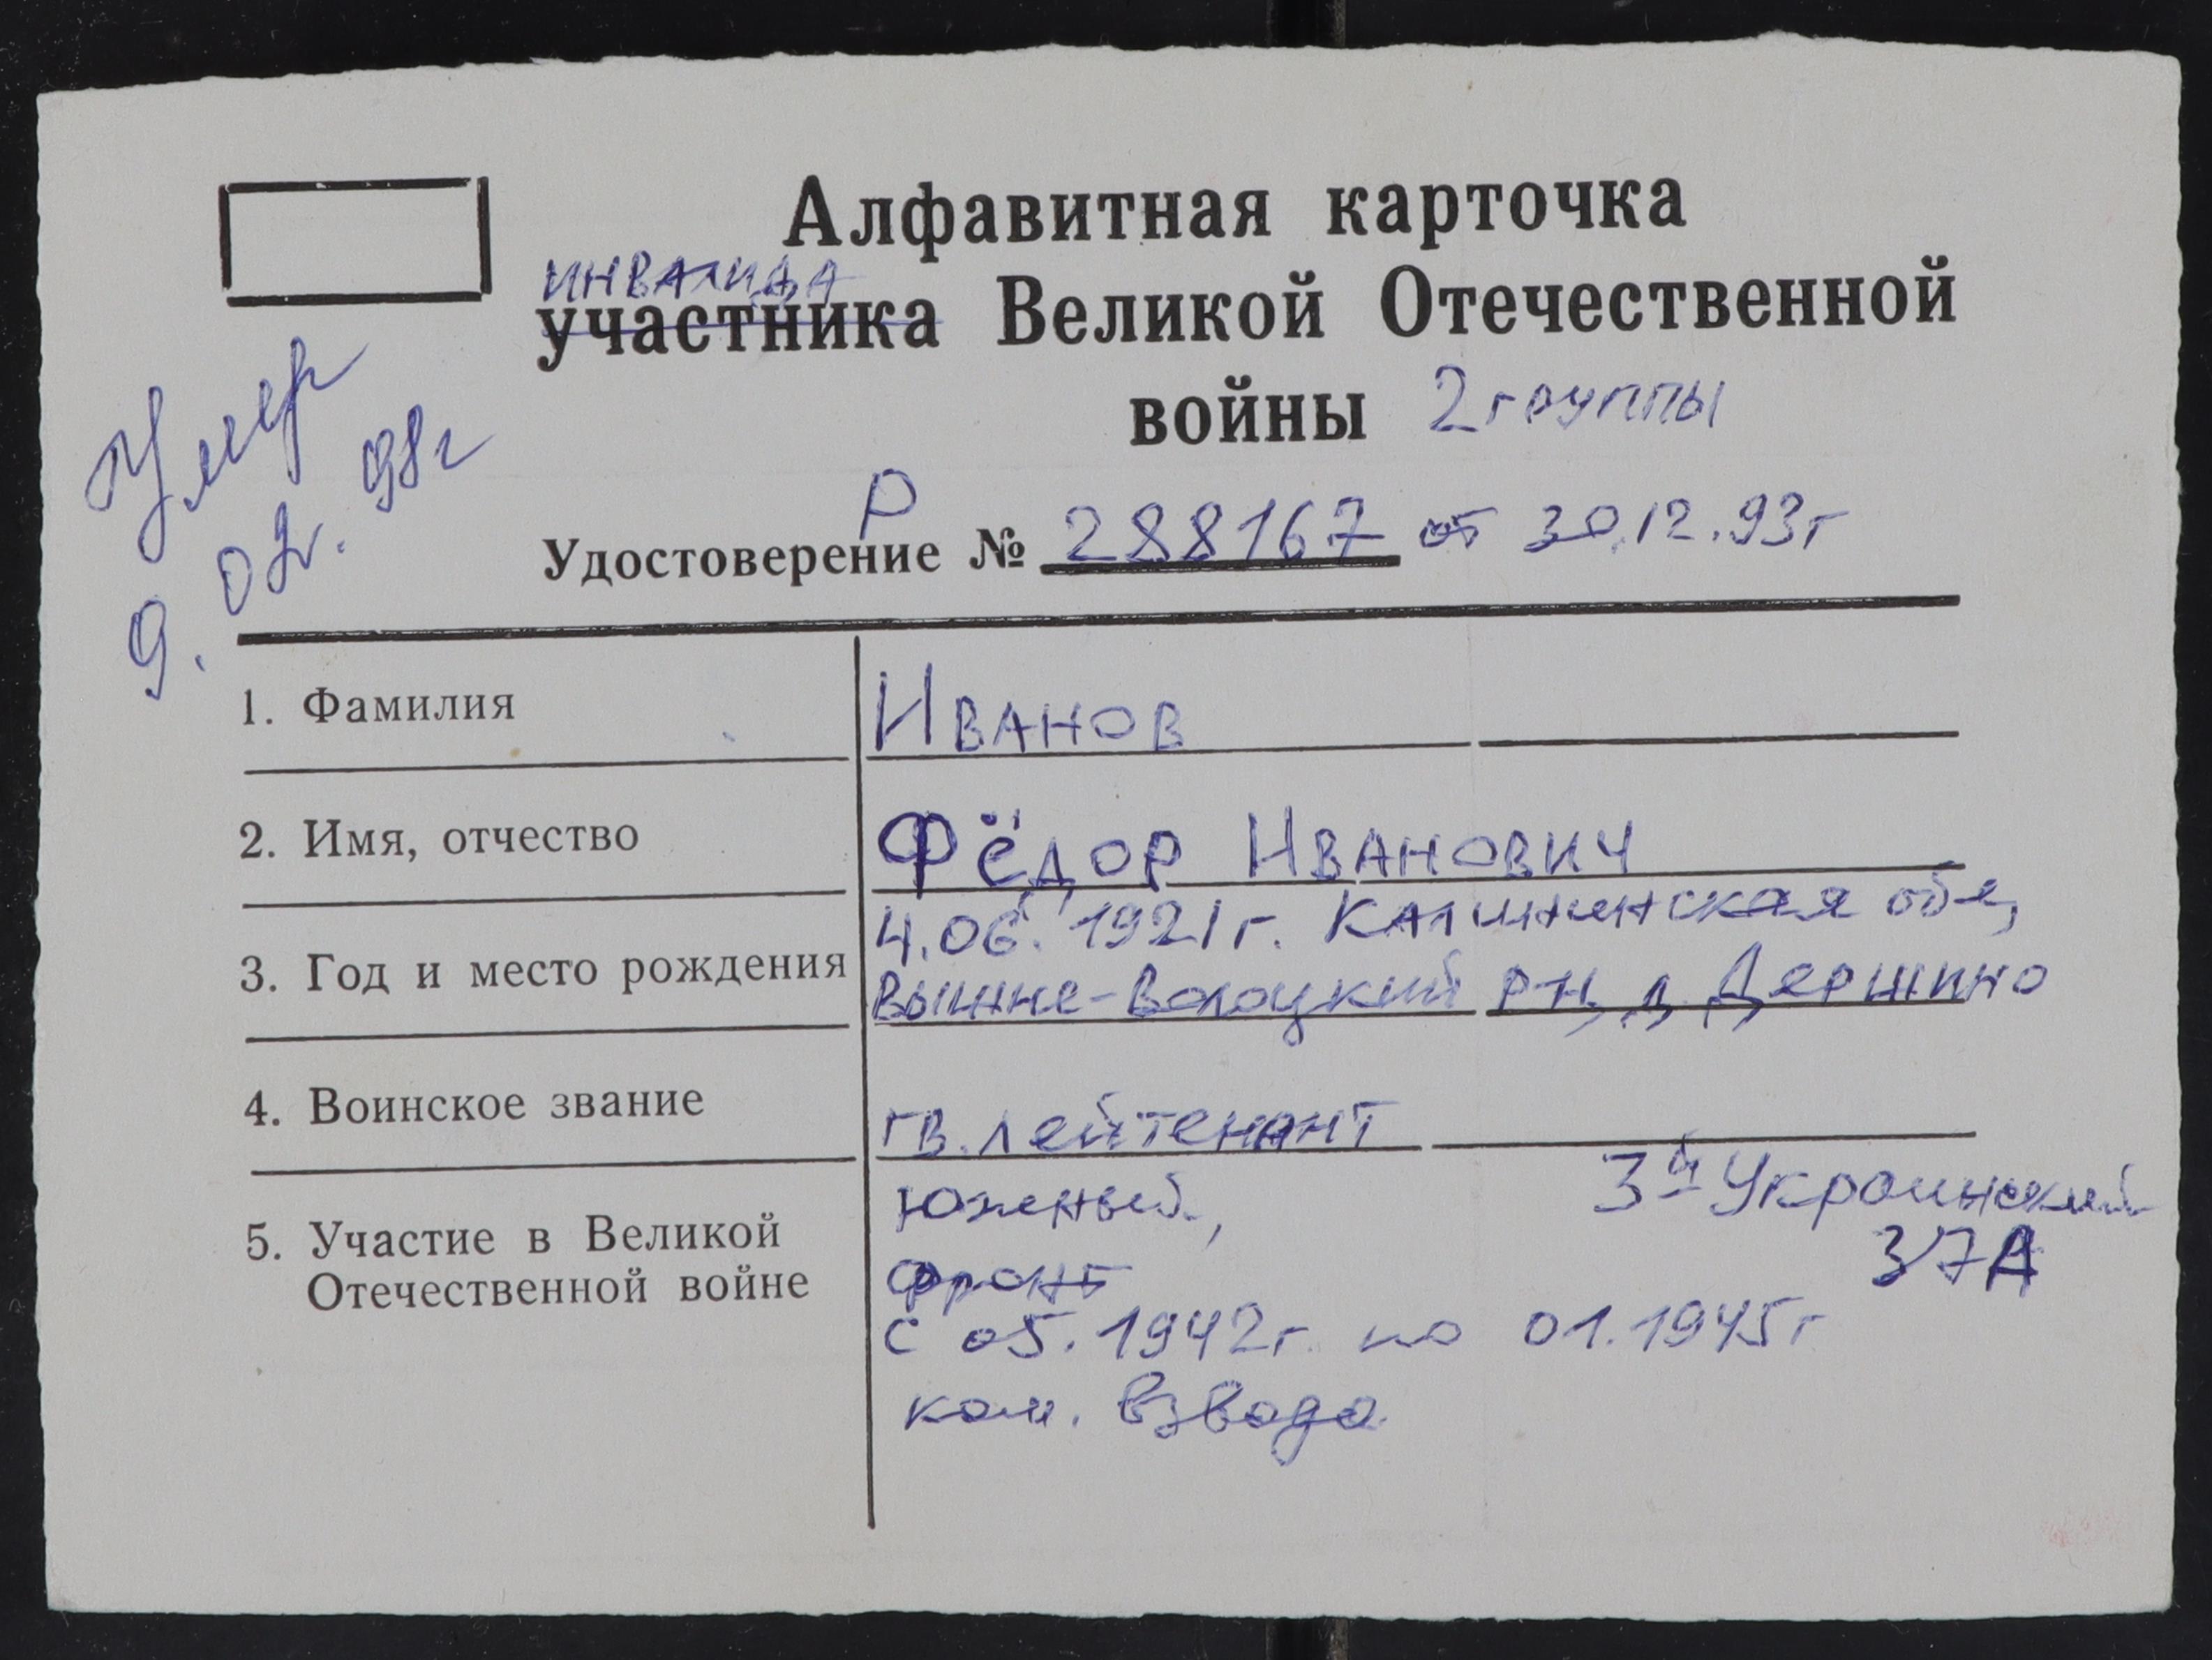 Алфавитная карточка
ИНВАЛИДА
участника Великой Отечественной
войны 2 группы
Умер
9. 02. 98г
Р
Удостоверение № 288167 от 30.12.93г
1. Фамилия
Иванов
2. Имя, отчество
Фёдор Иванович
3. Год и место рождения
4.06.1921г. Калининская обл,
Вышне-Волоцкий р-н, д. Дершино
4. Воинское звание
гв. лейтенант
5. Участие в Великой
Отечественной войне
Южный, 3й Украинский
фронт 37А
с 05.1942г. по 01.1945г
ком. взвода